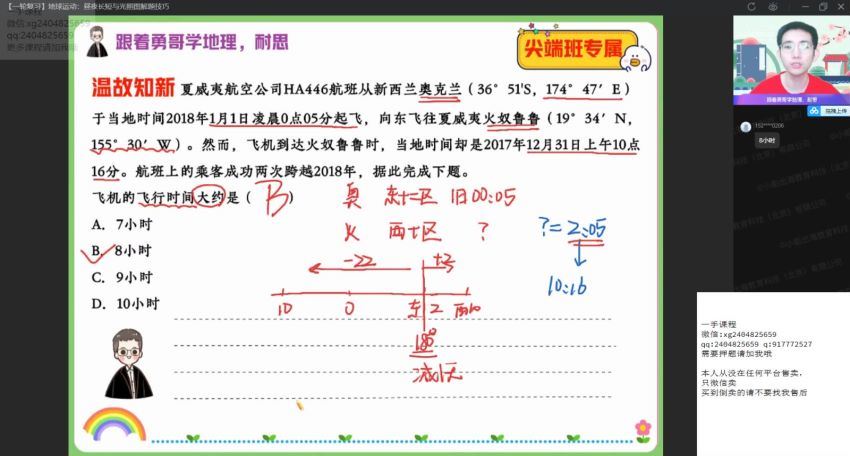 【一轮复习】地球运动：昼夜长短与光照图解题技巧
一手课程
微信:xg2404825659
qq:2404825659
更多课程请加我哦
跟着勇哥学地理，耐思
尖端班专属
温故知新 夏威夷航空公司HA446航班从新西兰奥克兰（36°51′S，174°47′E）
于当地时间2018年1月1日凌晨0点05分起飞，向东飞往夏威夷火奴鲁鲁（19°34′N，
155°30′W）。然而，飞机到达火奴鲁鲁时，当地时间却是2017年12月31日上午10点
16分。航班上的乘客成功两次跨越2018年，据此完成下题。
飞机的飞行时间大约是（ B ）
A. 7小时
B. 8小时
C. 9小时
D. 10小时
奥 东十二区 1日00:05
火 西十区 ?
?=2:05
10:16
-22 +2
10 0 东12 西10
180°
减1天
跟着勇哥学地理，耐思
拖拽上传
152****0206
8小时
一手课程
微信:xg2404825659
qq:2404825659 q:917772527
需要押题请加我哦
本人从没在任何平台售卖，
只微信卖
买到倒卖的请不要找我售后